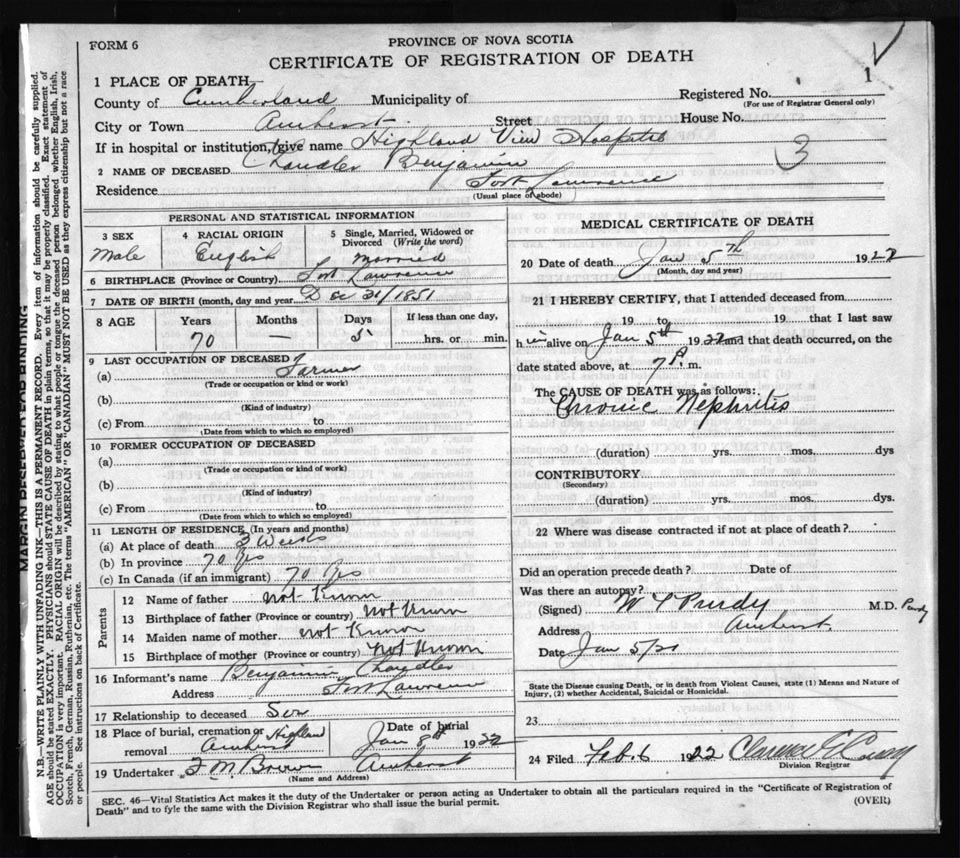 FORM 6
PROVINCE OF NOVA SCOTIA
CERTIFICATE OF REGISTRATION OF DEATH
1
1 PLACE OF DEATH
County of Cumberland Municipality of
Registered No.
(For use of Registrar General only)
City or Town Amherst Street House No.
If in hospital or institution, give name Highland View Hospital
3
2 NAME OF DECEASED Chandler Benjamin
Residence Fort Lawrence
(Usual place of abode)
PERSONAL AND STATISTICAL INFORMATION
3 SEX
Male
4 RACIAL ORIGIN
English
5 Single, Married, Widowed or
Divorced (Write the word)
Married
6 BIRTHPLACE (Province or Country) Fort Lawrence
7 DATE OF BIRTH (month, day and year) Dec 31/1851
8 AGE Years Months Days If less than one day,
70 — 5 hrs. or min.
9 LAST OCCUPATION OF DECEASED
(a) Farmer
(Trade or occupation or kind or work)
(b)
(Kind of industry)
(c) From to
(Date from which to which so employed)
10 FORMER OCCUPATION OF DECEASED
(a)
(Trade or occupation or kind of work)
(b)
(Kind of industry)
(c) From to
(Date from which to which so employed)
11 LENGTH OF RESIDENCE (In years and months)
(a) At place of death 3 Weeks
(b) In province 70 yrs
(c) In Canada (if an immigrant) 70 yrs
Parents
12 Name of father not Known
13 Birthplace of father (Province or country) not Known
14 Maiden name of mother not Known
15 Birthplace of mother (Province or country) not Known
16 Informant's name Benjamin Chandler
Address Fort Lawrence
17 Relationship to deceased Son
18 Place of burial, cremation or removal Highland Amherst
Date of burial
Jan 8th 1922
19 Undertaker F. M. Brown Amherst
(Name and Address)
MEDICAL CERTIFICATE OF DEATH
20 Date of death Jan 5th 1922
(Month, day and year)
21 I HEREBY CERTIFY, that I attended deceased from
19 to 19 that I last saw
him alive on Jan 5th 1922 and that death occurred, on the
date stated above, at 7 P. m.
The CAUSE OF DEATH was as follows:
Chronic Nephritis
(duration) yrs. mos. dys
CONTRIBUTORY
(Secondary)
(duration) yrs. mos. dys.
22 Where was disease contracted if not at place of death?
Did an operation precede death? Date of
Was there an autopsy?
(Signed) W T Purdy M.D. Purdy
Address Amherst.
Date Jan 5/21
State the Disease causing Death, or in death from Violent Causes, state (1) Means and Nature of
Injury, (2) whether Accidental, Suicidal or Homicidal.
23
24 Filed Feb. 6 1922 Clarence E
Division Registrar
SEC. 46—Vital Statistics Act makes it the duty of the Undertaker or person acting as Undertaker to obtain all the particulars required in the "Certificate of Registration of
Death" and to fyle the same with the Division Registrar who shall issue the burial permit.
(OVER)
MARGIN RESERVED FOR BINDING
N.B.—WRITE PLAINLY WITH UNFADING INK—THIS IS A PERMANENT RECORD. Every item of information should be carefully supplied.
AGE should be stated EXACTLY. PHYSICIANS should STATE CAUSE OF DEATH in plain terms, so that it may be properly classified. Exact statement of
OCCUPATION is very important. RACIAL ORIGIN will be described by stating to what people or tongue the deceased person belonged, whether English, Irish,
Scotch, French, German, Russian, Ruthenian, etc. The terms "AMERICAN" OR "CANADIAN" MUST NOT BE USED as they express citizenship but not a race
or people. See instructions on back of Certificate.